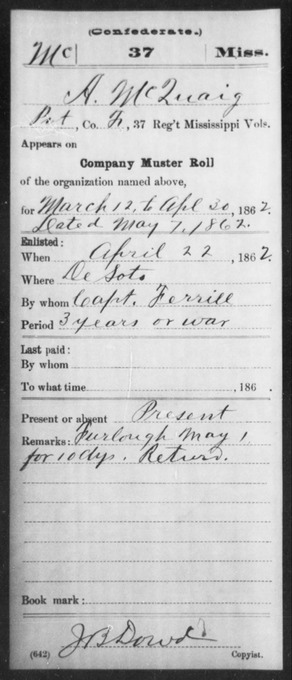 (Confederate.)
Mc 37 Miss.
A. McQuaig
Pvt, Co. F, 37 Reg't Mississippi Vols.
Appears on
Company Muster Roll
of the organization named above,
for March 12, to Apl 30, 1862.
Dated May 7, 1862.
Enlisted:
When April 22, 1862.
Where De Soto
By whom Capt. Ferrill
Period 3 years or war
Last paid:
By whom
To what time , 186 .
Present or absent Present
Remarks: Furlough May 1
for 10 dys. Return.
Book mark:
J B Dowd
(642) Copyist.